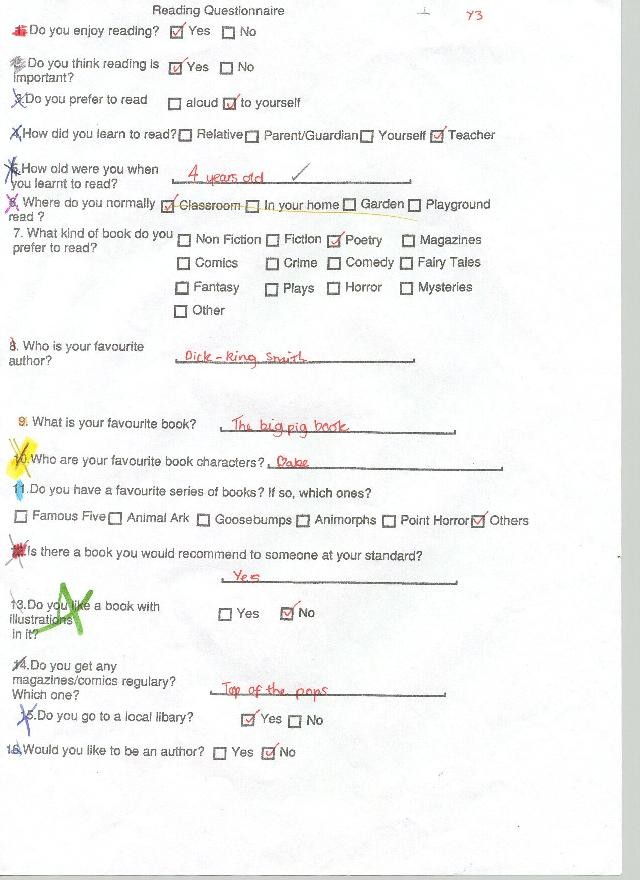 Reading Questionnaire
Y3
1. Do you enjoy reading? Yes No
2. Do you think reading is Yes No
important?
3. Do you prefer to read aloud to yourself
4. How did you learn to read? Relative Parent/Guardian Yourself Teacher
5. How old were you when
you learnt to read? 4 years old
6. Where do you normally Classroom In your home Garden Playground
read ?
7. What kind of book do you Non Fiction Fiction Poetry Magazines
prefer to read?
Comics Crime Comedy Fairy Tales
Fantasy Plays Horror Mysteries
Other
8. Who is your favourite
author? Dick-king smith
9. What is your favourite book? The big pig book
10. Who are your favourite book characters? Babe
11. Do you have a favourite series of books? If so, which ones?
Famous Five Animal Ark Goosebumps Animorphs Point Horror Others
12. Is there a book you would recommend to someone at your standard?
Yes
13. Do you like a book with Yes No
illustrations
in it?
14. Do you get any
magazines/comics regulary?
Which one? Top of the pops
15. Do you go to a local libary? Yes No
16. Would you like to be an author? Yes No